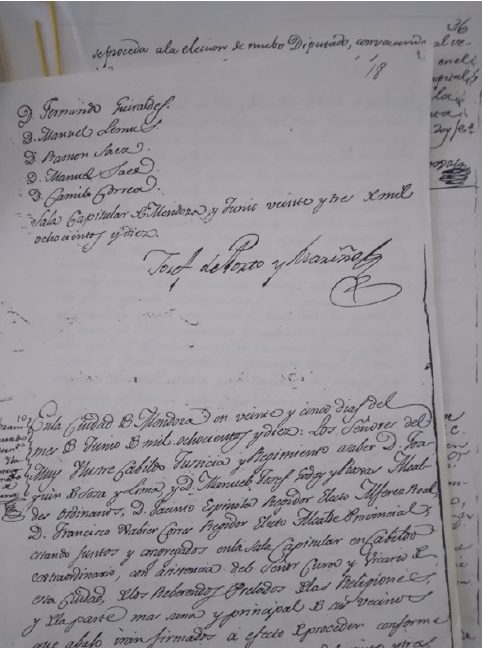 36
se proceda a la eleccion de nuebo Diputado, convocando al ve-
18
D. Fernando Guiraldes.
D. Manuel Lemus.
D. Ramon Saez.
D. Manuel Saez.
D. Camilo Correa.
Sala Capitular de Mendoza, y Junio veinte y tres de mil
ochocientos y diez.
Josef de Porto y Mariño
En la Ciudad de Mendoza en veinte y cinco dias del
mes de Junio de mil ochocientos y diez: Los Señores del
Muy Ilustre Cabildo Justicia y Regimiento a saber D. Joa-
quin de Sosa y Lima, y D. Manuel Josef Godoy y Roxas Alcal-
des ordinarios, D. Jacinto Espinola Regidor Electo Alferez Real,
D. Francisco Xabier Correa Regidor Electo Alcalde Provincial,
estando juntos y congregados en la Sala Capitular en Cabildo
extraordinario, con asistencia del Señor Cura y Vicario de
esta Ciudad, de los Reberendos Prelados de las Religiones,
y de la parte mas sana y principal de sus vecinos
que abajo irán firmados a efecto de proceder conforme